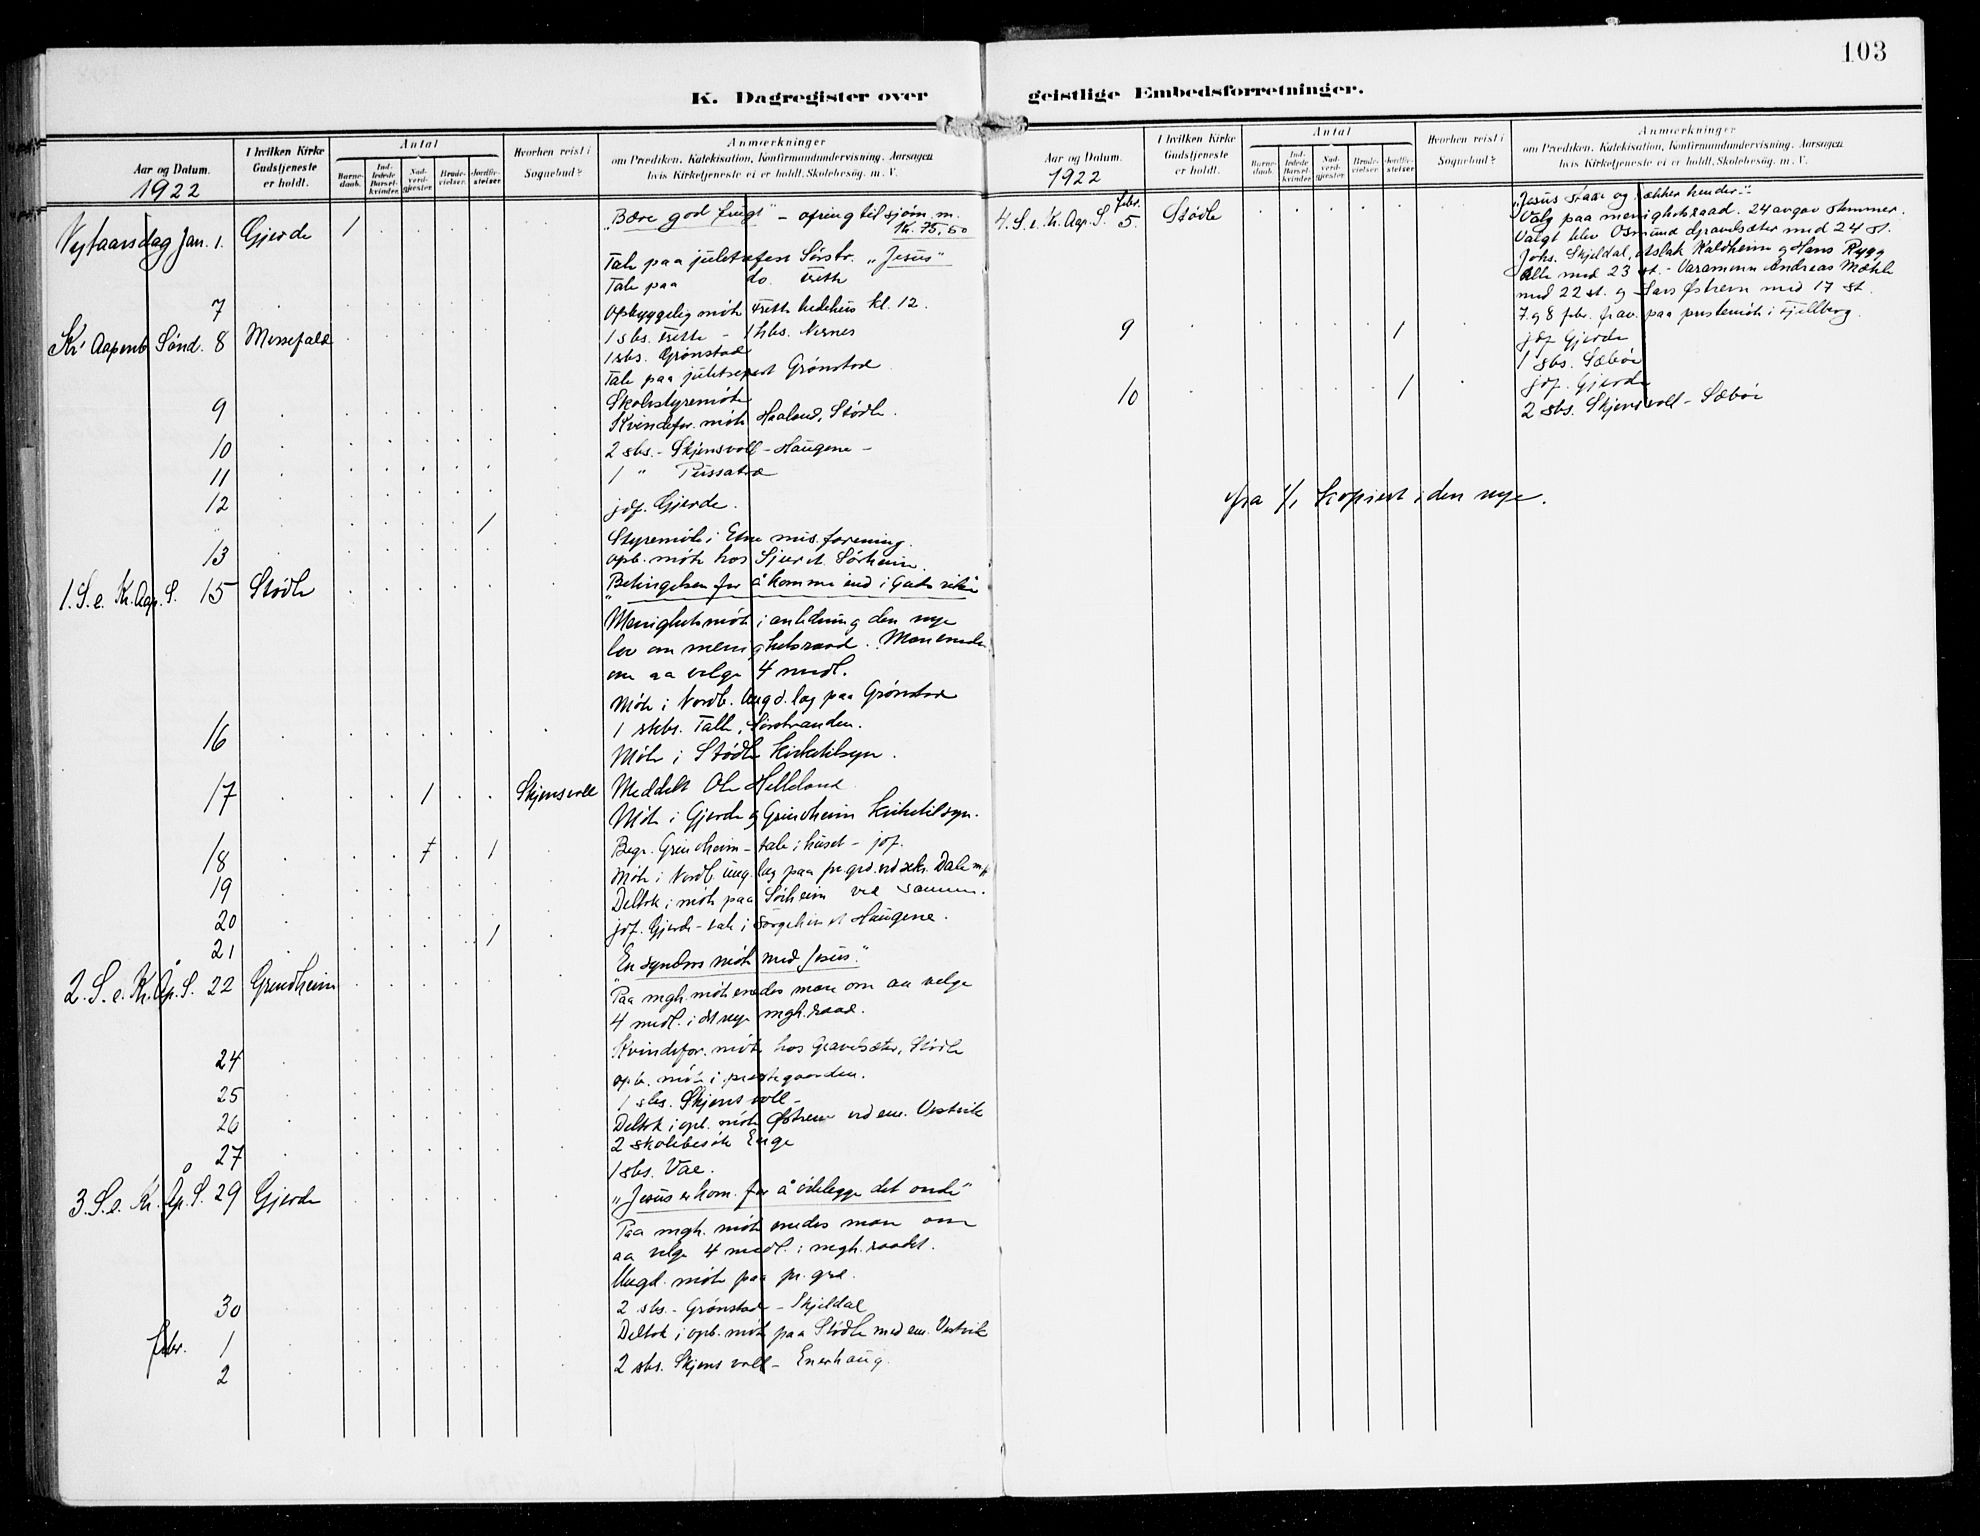 103
K. Dagregister over geistlige Embedsforretninger.
Aar og Datum.
1922
I hvilken Kirke Gudstjeneste er holdt.
Antal
Barnedaab.
Indledede Barselkvinder.
Nadverdgjester.
Brudevielser.
Jordfæstelser
Hvorhen reist i Sognebud?
Anmerkninger
om Prædiken, Katekisation, Konfirmandundervisning, Aarsagen
hvis Kirketjeneste ei er holdt, Skolebesøg, m. V.
Nytaarsdag Jan. 1. Gjerde 1 "Bære god frugt" – ofring til sjøm. m.
Kr. 75,50
Tale paa juletrefest Sørstr. "Jesus"
Tale paa do. Frette
7 Opbyggelig møte Frette bedehus kl. 12.
Kr. Aapenb. Sønd. 8 Messefald 1 sbs. Frette – 1 hbs. Nernes
1 sbs. Grønstad
Tale paa juletrefest Grønstad
9 Skolestyremøte
Kvindefor. møte Haaland, Stødle.
10 2 sbs. – Skjensvoll – Haugene –
11 1 "
12 1 jdf. Gjerde.
Styremøte i Etne mis. forening.
13 opb. møte hos Sjurd Sørheim.
1. S. e. Kr. Aap. S. 15 Stødle "Betingelsen for å komme ind i Guds rike"
Menighetsmøte i anledning den nye
lov om menighetsraad. Man enedes
om aa velge 4 medl.
Møte i Nordb. Ungd. lag paa Grønstad
16 1 skbs. Talle, Sørstranden.
Møte i Stødle Kirketilsyn.
17 1 Skjensvoll Meddelt Ole Helleland
Møte i Gjerde og Grindheim Kirketilsyn.
18 1 Begr. Grindheim – tale i huset – jdf.
19 Møte i Nordb. ung. lag paa pr. grd. ved sekr. Dale
20 Deltok i møte paa Sørheim ved samme.
21 1 jdf. Gjerde – tale i sørgehuset Haugene.
2. S. e. Kr. Åp. S. 22 Grindheim "En synders møte med Jesus."
Paa mgh. møte enedes man om aa velge
4 medl. i det nye mgh. raad.
24 Kvindefor. møte hos Gravelsæter, Stødle
opb. møte i prestegaarden.
25 1 sbs. Skjensvoll –
26 Deltok i opb. møte Østrem ved em. Vestvik
27 2 skolebesøk Enge
1 sbs. Vae.
3. S. e. Kr. Åp. S. 29 Gjerde "Jesus er kom. for å ødelegge det onde"
Paa mgh. møte enedes man om
aa velge 4 medl. i mgh. raadet.
Ungd. møte paa pr. grd.
30 2 sbs. – Grønstad – Skjeldal
febr. 1 Deltok i opb. møte paa Stødle med em. Vestvik
2 2 sbs. Skjensvoll – Enerhaug.
Aar og Datum.
1922
I hvilken Kirke Gudstjeneste er holdt.
Antal
Barnedaab.
Indledede Barselkvinder.
Nadverdgjester.
Brudevielser.
Jordfæstelser
Hvorhen reist i Sognebud?
Anmærkninger
om Prædiken, Katekisation, Konfirmandundervisning, Aarsagen
hvis Kirketjeneste ei er holdt, Skolebesøg, m. V.
4. S. e. Kr. Aap. S. febr. 5. Stødle "Jesus staar og rækker hender."
Valg paa menighetsraad. 24 avgav stemmer.
Valgt blev Osmund Gravelsæter med 24 st.
Johs. Skjeldal, Aslak Kaldheim og Hans Rygg
alle med 23 st. – Varamenn Andreas Mæhle
med 22 st. og Lars Østrem med 17 st.
7. og 8 febr. frav. paa prestemøte i Fjellberg.
9 1 jdf. Gjerde
1 sbs. Sæbø
10 1 jdf. Gjerde
2 sbs. Skjensvoll – Sæbø
fra 1/1 kopiert i den nye.